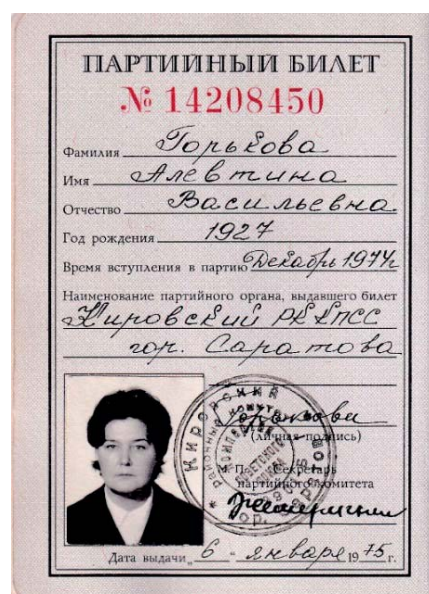 ПАРТИЙНЫЙ БИЛЕТ
№ 14208450
Фамилия Горькова
Имя Алевтина
Отчество Васильевна
Год рождения 1927
Время вступления в партию Декабрь 1974г
Наименование партийного органа, выдавшего билет
Кировский РК КПСС
гор. Саратова
(личная подпись)
М. П. Секретарь
партийного комитета
Дата выдачи „6 января 1975 г.